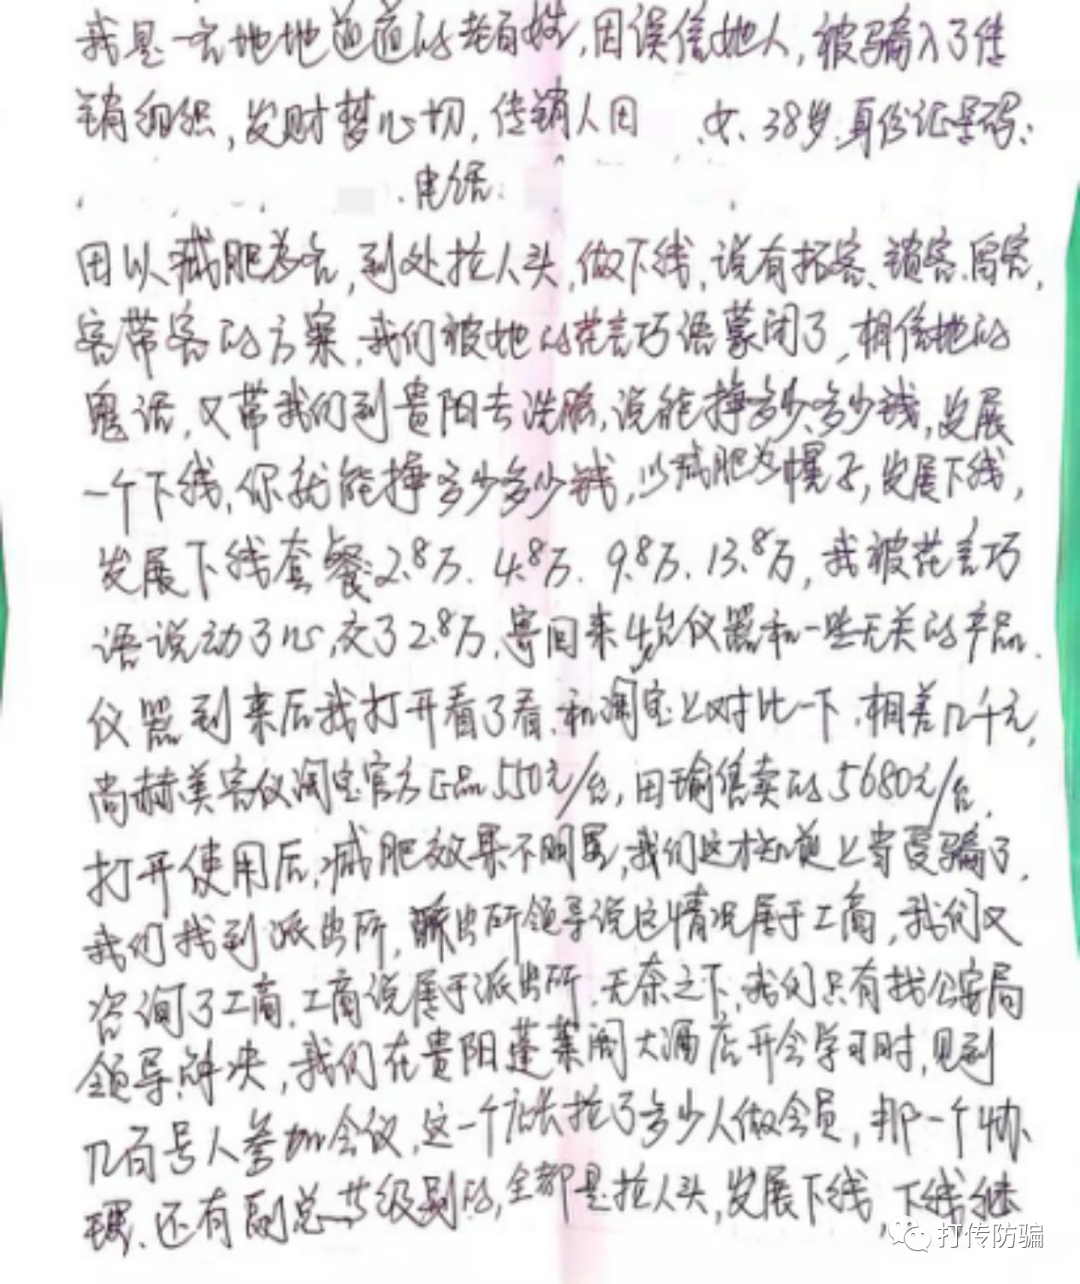 我是一名地地道道的老百姓,因误信她人,被骗入了传
销组织,发财梦心切,传销人田 女、38岁.身份证号码:
电话:
田以减肥为名,到处拉人头,做下线,说有拓客、锁客.留客,
客带客的方案.我们被她的花言巧语蒙闭了,相信她的
鬼话,又带我们到贵阳去洗脑,说能挣多少多少钱,发展
一个下线,你就能挣多少多少钱,以减肥为幌子,发展下线,
发展下线套餐2.8万、4.8万、9.8万、13.8万,我被花言巧
语说动了心,交了2.8万,寄回来4台仪器和一些无关的产品.
仪器到来后我打开看了看.和淘宝上对比一下.相差几千元,
尚赫美容仪淘宝官方正品550元/台,田瑜售卖的5680元/台.
打开使用后,减肥效果不明显,我们这才知道上当受骗了.
我们找到派出所,派出所领导说这情况属于工商,我们又
咨询了工商.工商说属于派出所.无奈之下,我们只有找公安局
领导解决,我们在贵阳蓬莱阁大酒店开会学习时,见到
几百号人参加会议,这一个店长拉了多少人做会员,那一个协
理.还有副总..级别的,全都是拉人头,发展下线,下线继
打传防骗